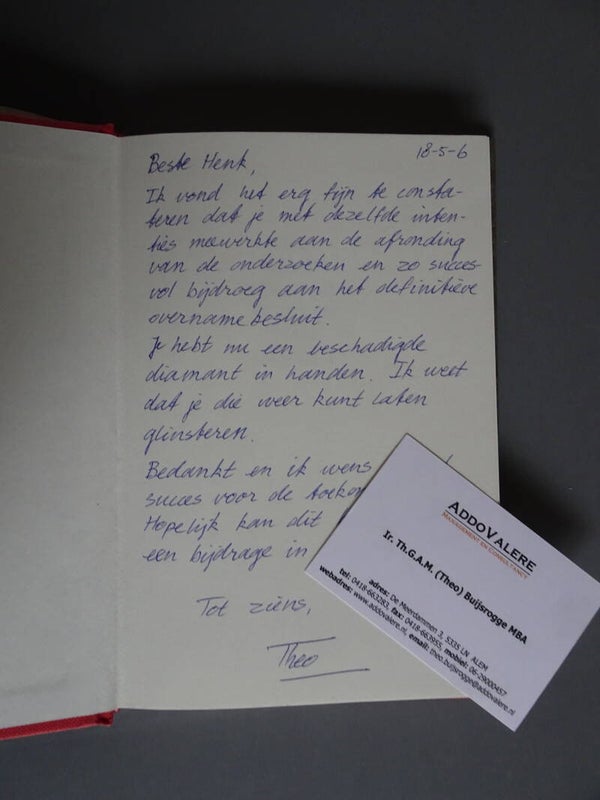 18-5-6
Beste Henk,
Ik vond het erg fijn te consta-
teren dat je met dezelfde inten-
ties meewerkte aan de afronding
van de onderzoeken en zo succes-
vol bijdroeg aan het definitieve
overnamebesluit.
Je hebt nu een beschadigde
diamant in handen. Ik weet
dat je die weer kunt laten
glinsteren.
Bedankt en ik wens
succes voor de
Hopelijk kan dit
een bijdrage in
Tot ziens,
Theo
ADDOVALERE
MANAGEMENT EN CONSULTANCY
Ir. Th.G.A.M. (Theo) Buijsrogge MBA
adres: De Meerdammen 3, 5335 LN ALEM
tel: 0418-663283, fax: 0418-663955, mobiel: 06-29000457
webadres: www.addovalere.nl, email: theo.buijsrogge@addovalere.nl